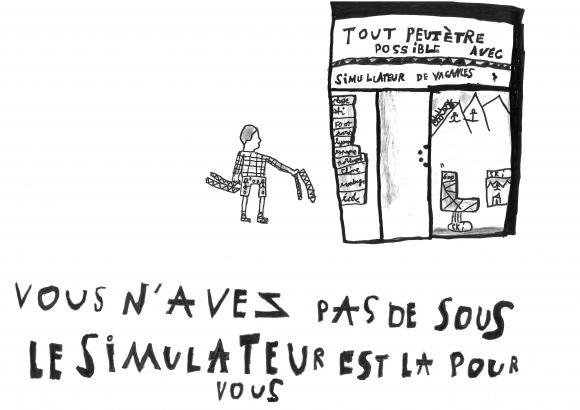 TOUT PEUTÈTRE
POSSIBLE AVEC
SIMULATEUR DE VACANCES
FOOT
SKI
SKI
VOUS N'AVEZ PAS DE SOUS
LE SIMULATEUR EST LA POUR
VOUS